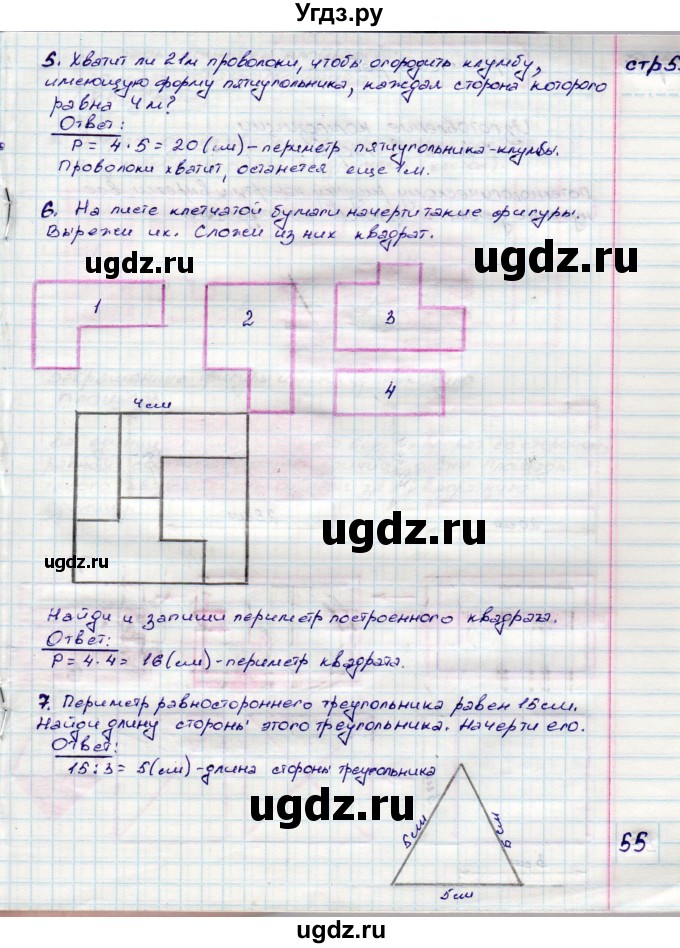 Угдз.ру
5. Хватит ли 21м проволоки, чтобы огородить клумбу,
имеющую форму пятиугольника, каждая сторона которого
равна 4м?
стр.5
Ответ:
Р = 4 · 5 = 20 (см) - периметр пятиугольника-клумбы.
Проволоки хватит, останется еще 1м.
6. На листе клетчатой бумаги начерти такие фигуры.
Вырежи их. Сложи из них квадрат.
ugdz.ru
ugdz.ru
1
2
3
4
4см
ugdz.ru
ugdz.ru
Найди и запиши периметр построенного квадрата.
Ответ:
Р = 4 · 4 = 16 (см) - периметр квадрата.
7. Периметр равностороннего треугольника равен 15см.
Найди длину стороны этого треугольника. Начерти его.
Ответ:
15 : 3 = 5 (см) - длина стороны треугольника
ugdz.ru
5см
5см
5см
55
ugdz.ru
ugdz.ru